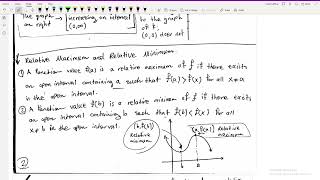 The graph
on right
increasing on interval
(0,∞)
to the graph
of f.
(0,0) does not
↓
Relative Maximum and Relative Minimum
① A function value f(a) is a relative maximum of f if there exists
an open interval containing a such that f(a) > f(x) for all x≠a
in the open interval.
② A function value f(b) is a relative minimum of f if there exists
an open interval containing b such that f(b) < f(x) for all
x≠b in the open interval.
(b, f(b))
Relative
minimum
(a, f(a)) Relative
maximum
②